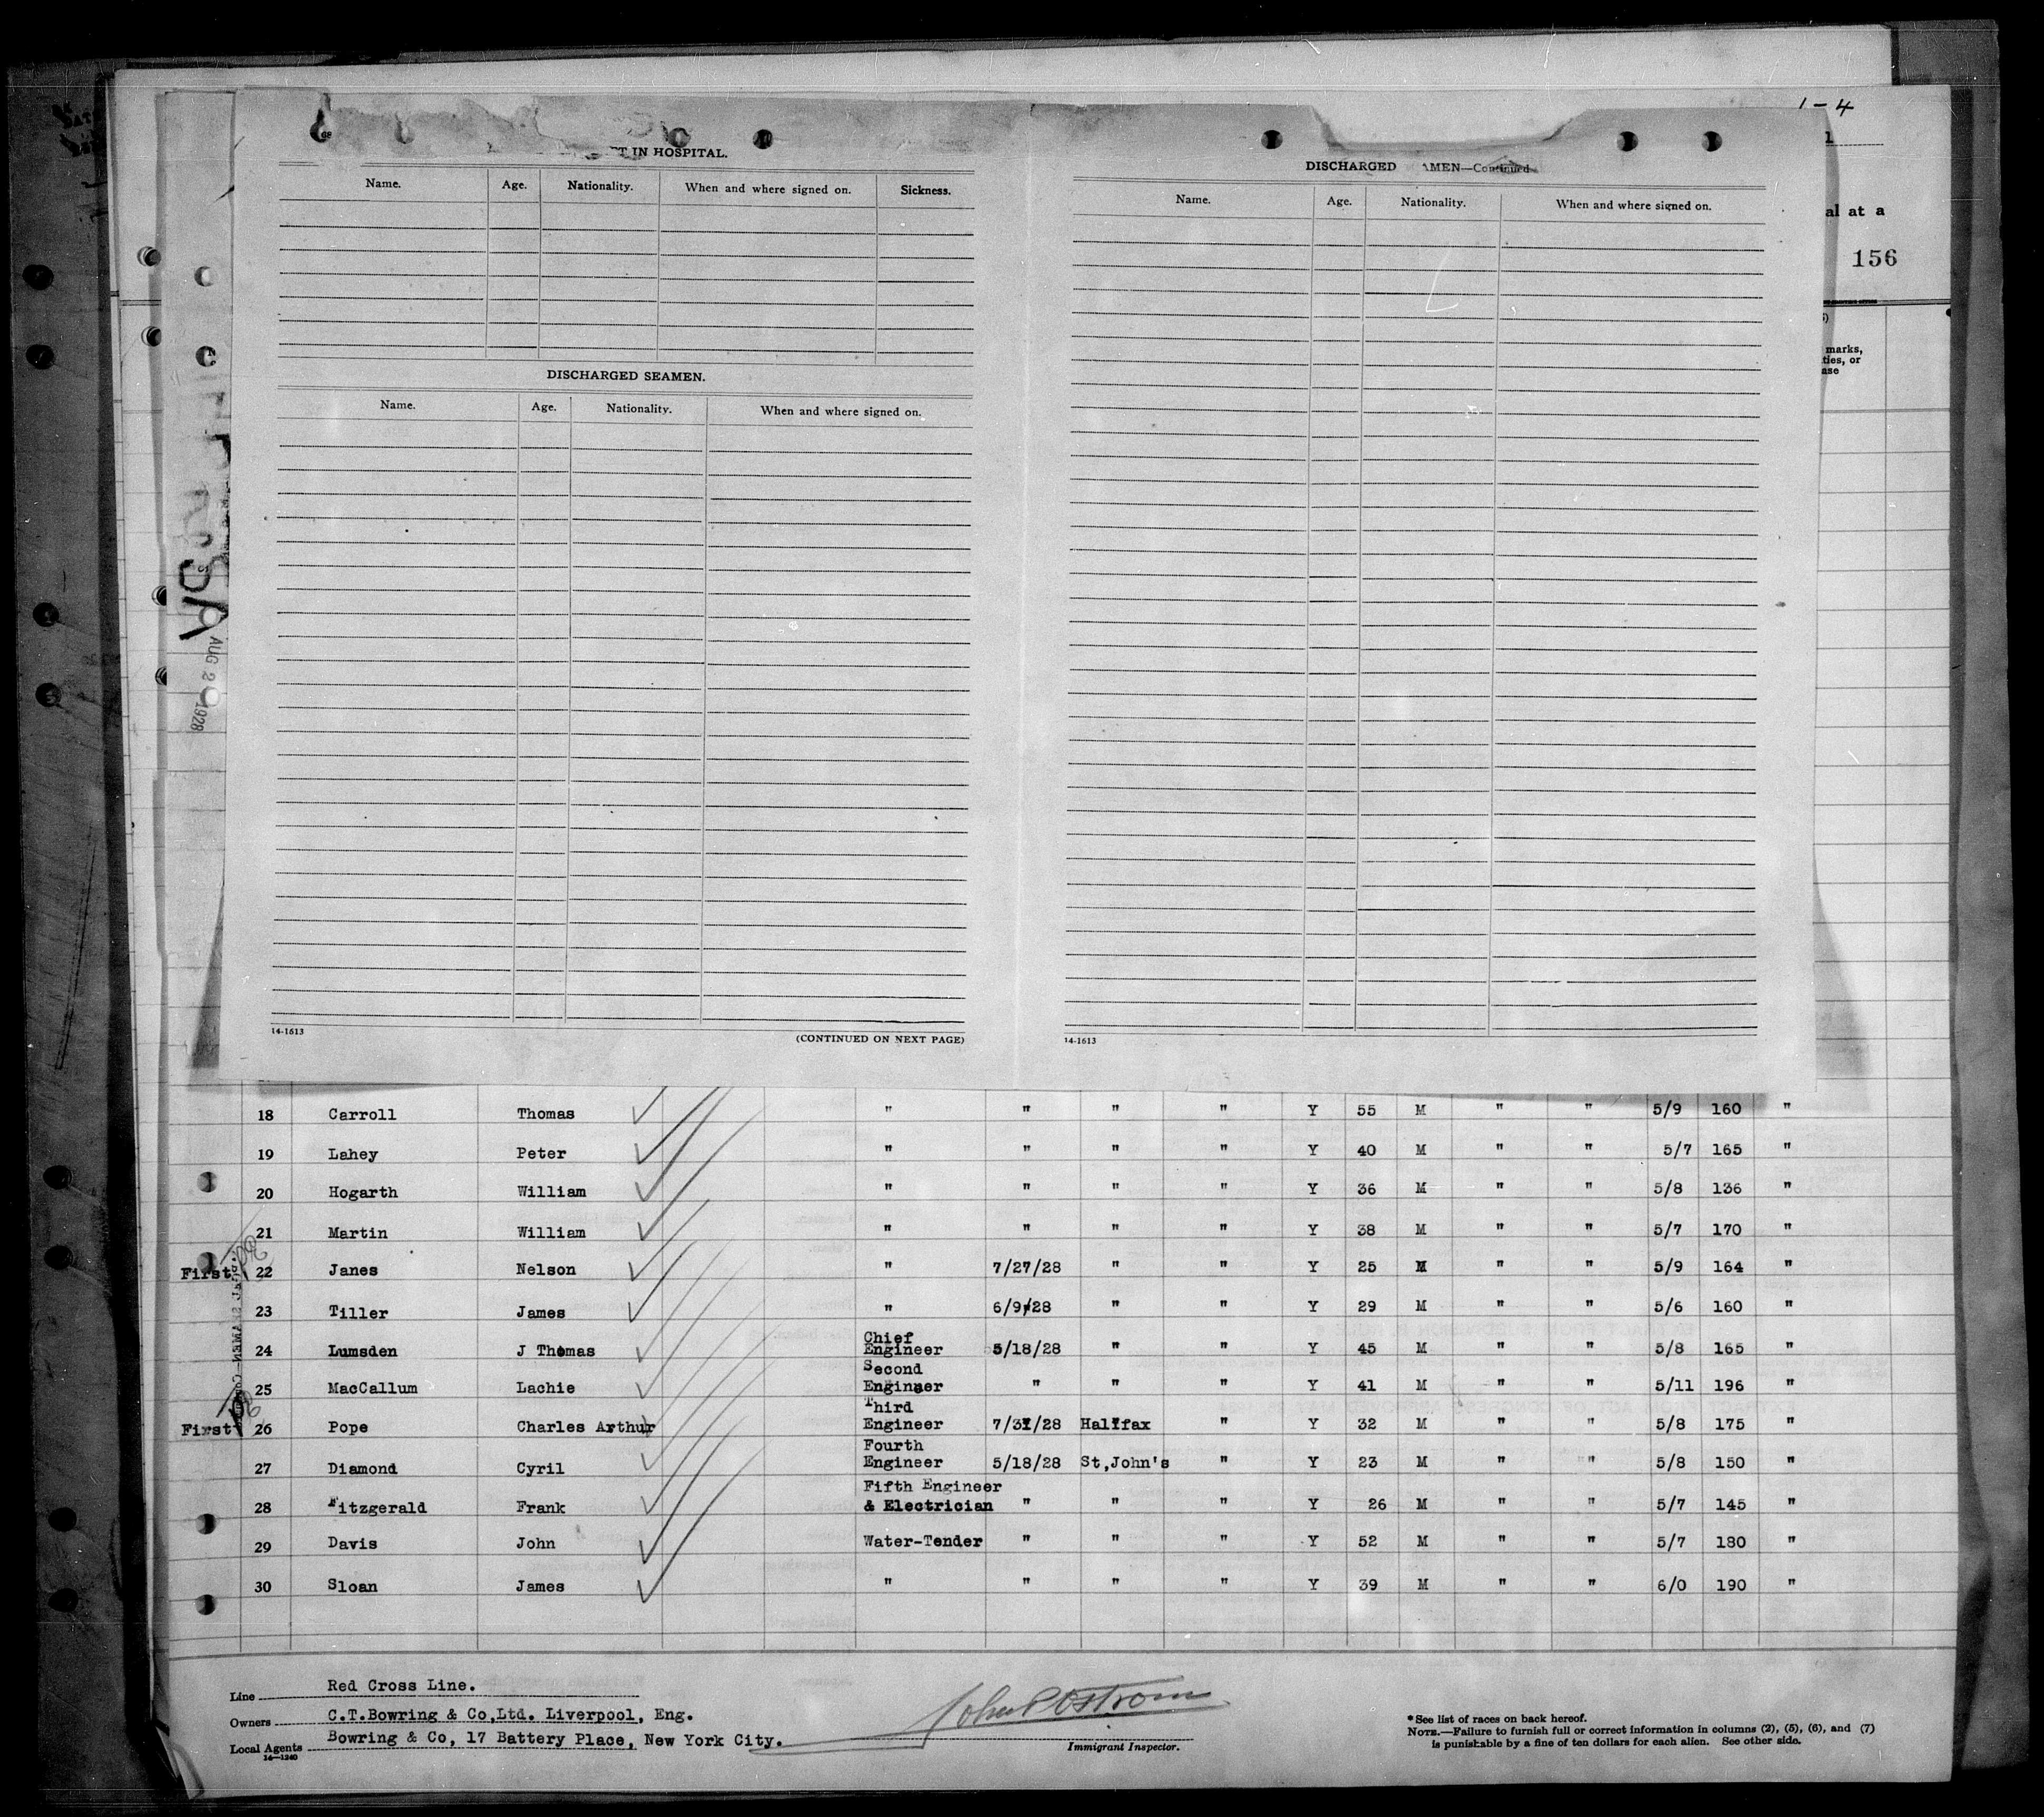 1-4
1
al at a
156
marks,
ties, or
ase
T IN HOSPITAL.
Name. Age. Nationality. When and where signed on. Sickness.
DISCHARGED SEAMEN.
Name. Age. Nationality. When and where signed on.
14-1613
(CONTINUED ON NEXT PAGE)
DISCHARGED AMEN—Continued
Name. Age. Nationality. When and where signed on.
14-1613
AUG 2 1928
18 Carroll Thomas " " " " Y 55 M " " 5/9 160 "
19 Lahey Peter " " " " Y 40 M " " 5/7 165 "
20 Hogarth William " " " " Y 36 M " " 5/8 136 "
21 Martin William " " " " Y 38 M " " 5/7 170 "
First 22 Janes Nelson " 7/27/28 " " Y 25 M " " 5/9 164 "
23 Tiller James " 6/9/28 " " Y 29 M " " 5/6 160 "
Chief
24 Lumsden J Thomas Engineer 5/18/28 " " Y 45 M " " 5/8 165 "
Second
25 MacCallum Lachie Engineer " " " Y 41 M " " 5/11 196 "
Third
First 26 Pope Charles Arthur Engineer 7/31/28 Halifax " Y 32 M " " 5/8 175 "
Fourth
27 Diamond Cyril Engineer 5/18/28 St,John's " Y 23 M " " 5/8 150 "
Fifth Engineer
28 Fitzgerald Frank & Electrician " " " Y 26 M " " 5/7 145 "
29 Davis John Water-Tender " " " Y 52 M " " 5/7 180 "
30 Sloan James " " " " Y 39 M " " 6/0 190 "
Line Red Cross Line.
Owners C.T.Bowring & Co,Ltd. Liverpool, Eng.
Local Agents Bowring & Co, 17 Battery Place, New York City.
14—1240
John P Ostrom
Immigrant Inspector.
*See list of races on back hereof.
NOTE.—Failure to furnish full or correct information in columns (2), (5), (6), and (7)
is punishable by a fine of ten dollars for each alien. See other side.